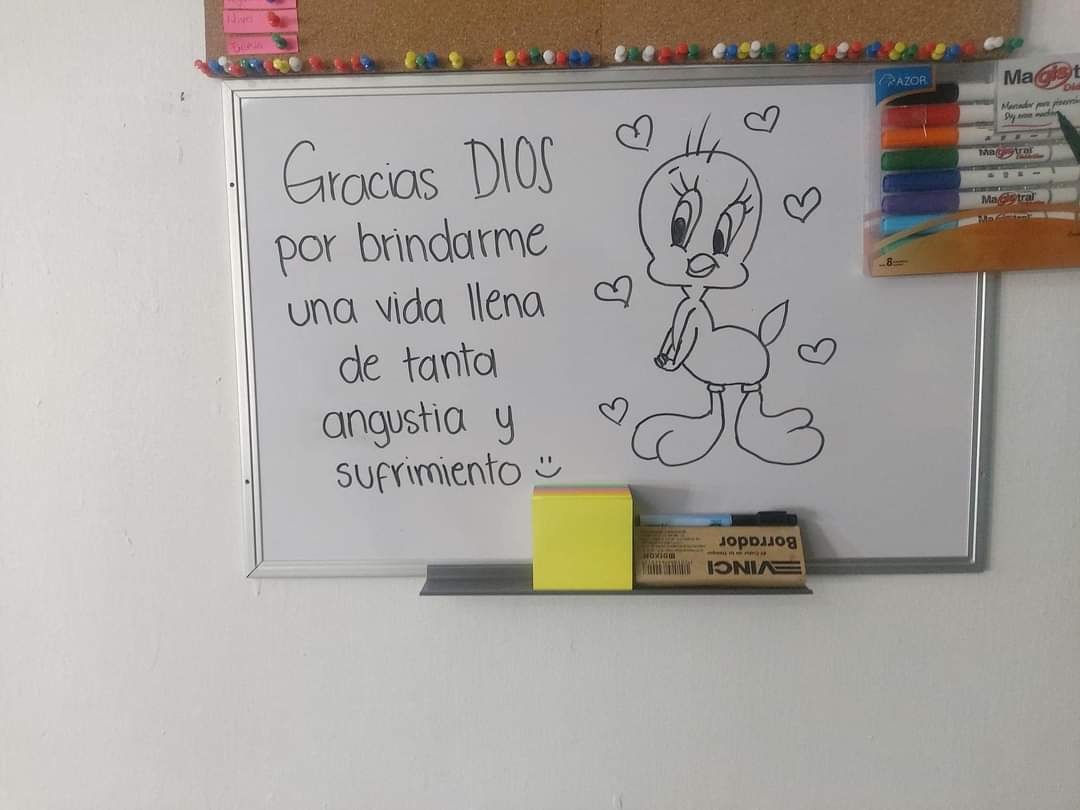 Nivel
Gracias DIOS
por brindarme
una vida llena
de tanta
angustia y
sufrimiento :)
RAZOR
Magistral
Marcador para pizarrón
Magistral
Magistral
8
Borrador
VINCI
DIXON